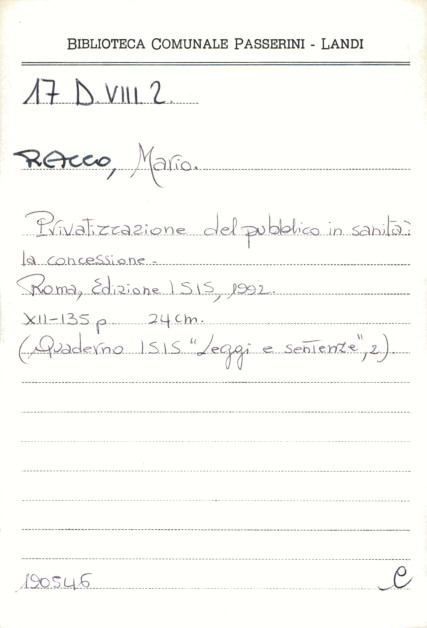 BIBLIOTECA COMUNALE PASSERINI - LANDI
17 D. VIII. 2.
RACCO, Mario.
Privatizzazione del pubblico in sanità:
la concessione.
Roma, Edizione ISIS, 1992.
XII-135 p. 24 cm.
(Quaderno ISIS "Leggi e sentenze", 2).
190546 C